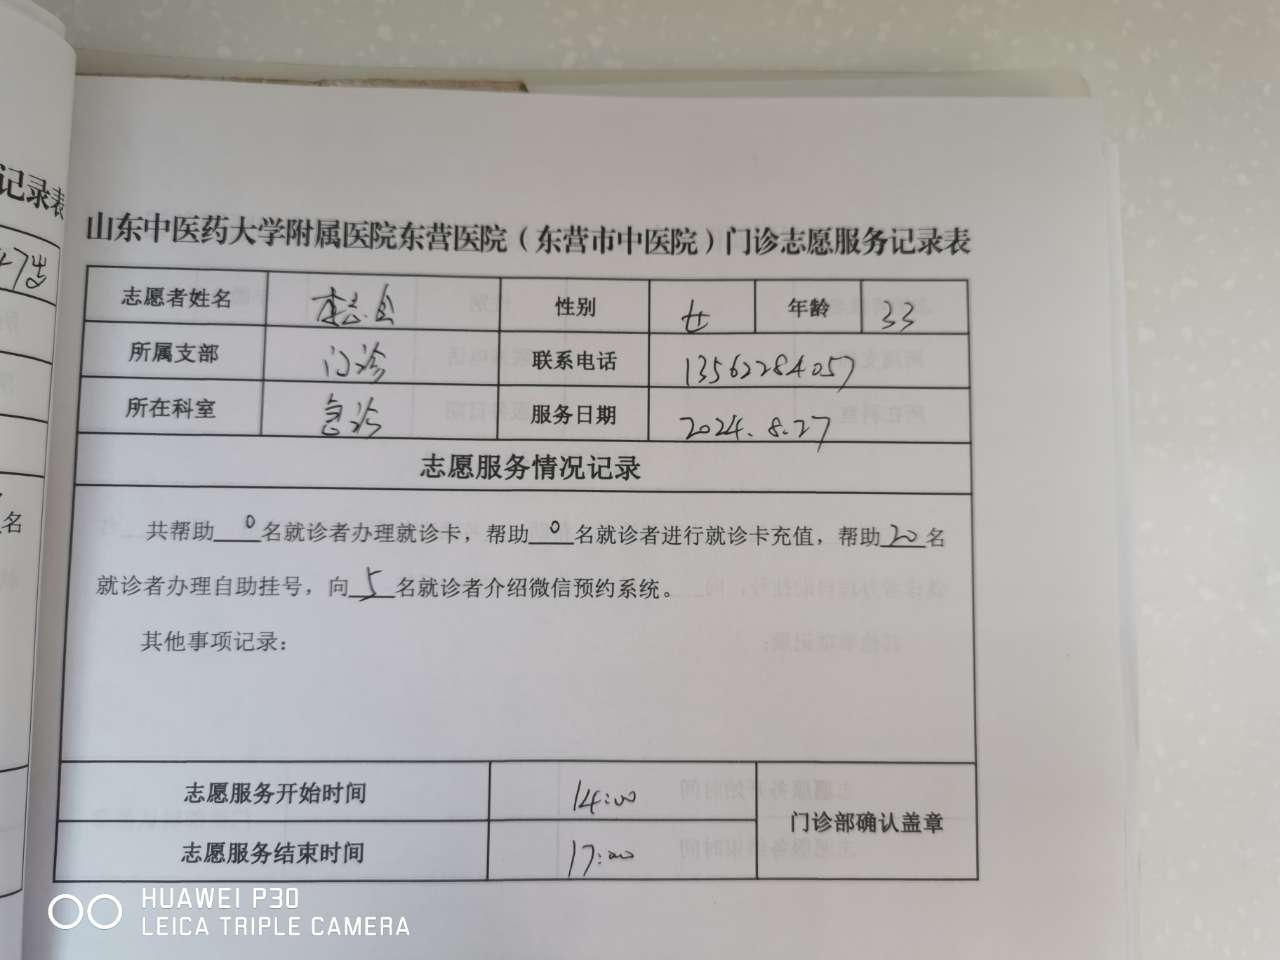 记录表
47岁
名
山东中医药大学附属医院东营医院（东营市中医院）门诊志愿服务记录表
志愿者姓名 李志 性别 女 年龄 33
所属支部 门诊 联系电话 13562284057
所在科室 急诊 服务日期 2024.8.27
志愿服务情况记录
共帮助0名就诊者办理就诊卡，帮助0名就诊者进行就诊卡充值，帮助20名
就诊者办理自助挂号，向5名就诊者介绍微信预约系统。
其他事项记录：
志愿服务开始时间 14:00
门诊部确认盖章
志愿服务结束时间 17:00
HUAWEI P30
LEICA TRIPLE CAMERA